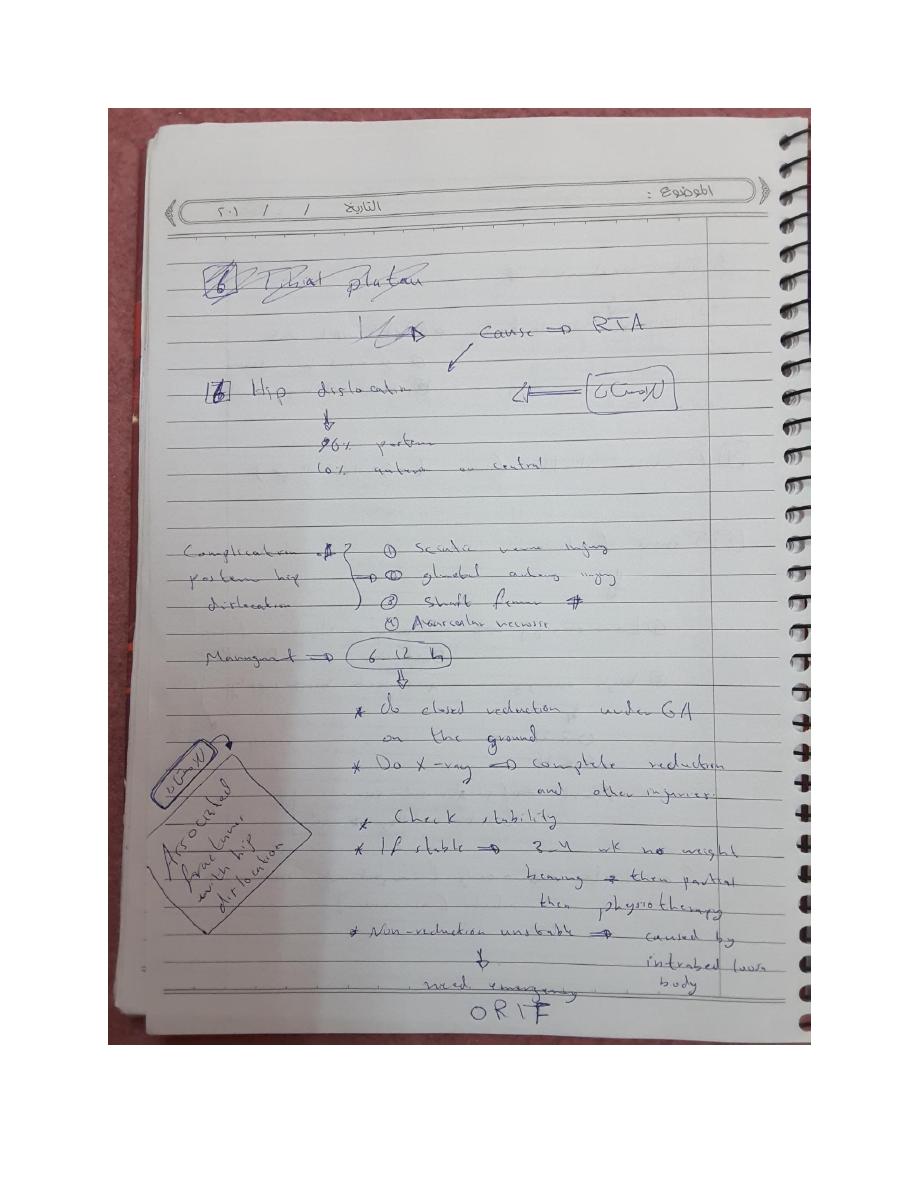 الموضوع :
التاريخ / / ٢٠١
6 Tibial platau
Cause ⇒ RTA
6 Hip dislocation
للامتحان
90% posterior
10% anterior or central
Complication # posterior hip dislocation
① Sciatic nerve injury
② gluteal artery injury
③ Shaft femur #
④ Avascular necrosis
Managment ⇒ 6 12 h
* do closed reduction under GA
on the ground
* Do X-ray ⇒ complete reduction
and other injuries.
* Check stability
* If stable ⇒ 3-4 wk no weight
bearing → then partial
then physiotherapy
* Non-reduction unstable ⇒ caused by
loose
body
need emergency
ORIF
للامتحان
Associated
fractures
with hip
dislocation